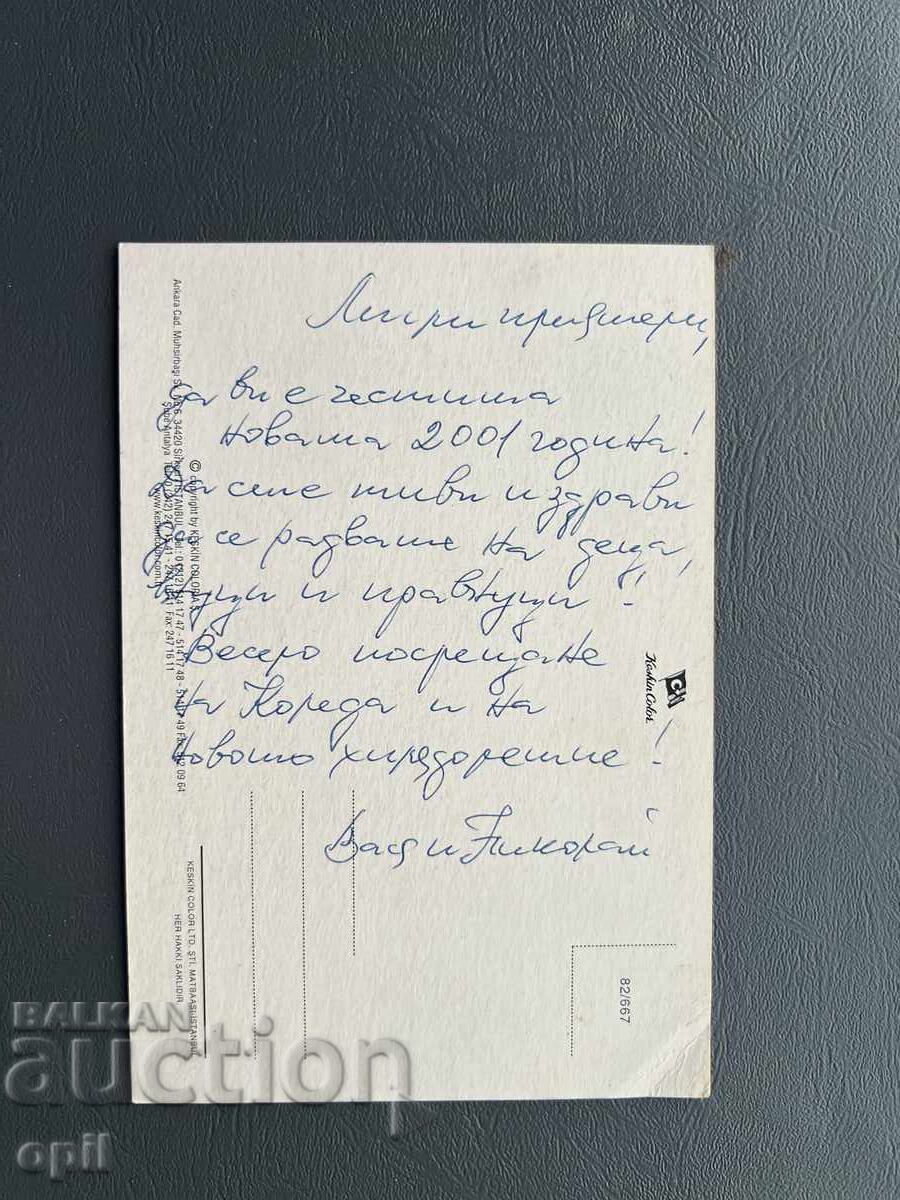 Мили приятели,
да ви е честита
новата 2001 година!
Да сте живи и здрави
да се радвате на деца,
внуци и правнуци!
Весело посрещане
на Коледа и на
новото хилядолетие!
Вася и Николай
Ankara Cad. Muhsirbaşı Sk. No 6, 34420 Sirkeci İSTANBUL Tel: 0 (212) 514 17 47 - 514 17 48 - 514 17 49 Fax: 09 64
Şube Antalya Tel: 0 (242) 247 15 41 - 247 16 11 Fax: 247 16 11
www.keskincolor.com
© copyright by KESKIN COLOR A.Ş.
Keskin Color
KESKIN COLOR LTD. ŞTİ. MATBAASI-İSTANBUL
HER HAKKI SAKLIDIR
82/667
BALKAN
auction
opil